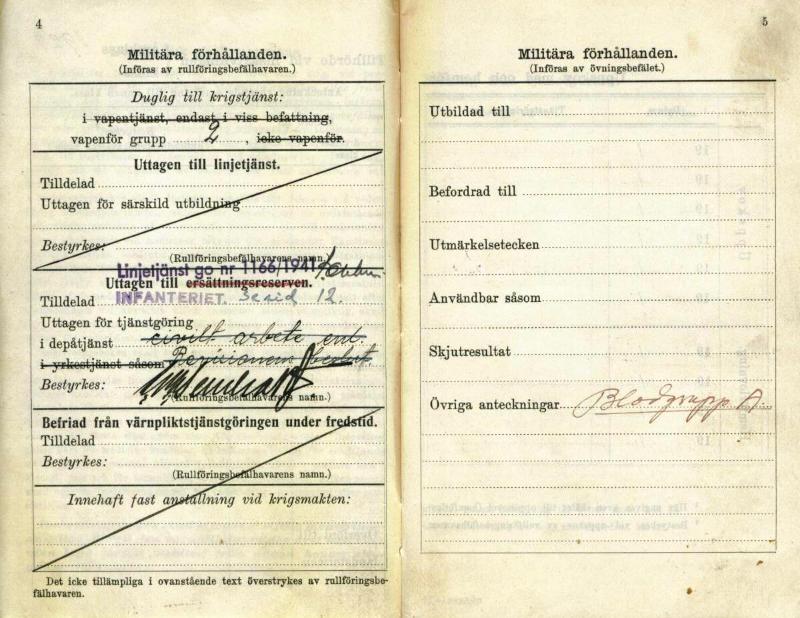 4
Militära förhållanden.
(Införas av rullföringsbefälhavaren.)
Duglig till krigstjänst:
i vapentjänst, endast i viss befattning,
vapenför grupp 2, icke vapenför.
Uttagen till linjetjänst.
Tilldelad
Uttagen för särskild utbildning
Bestyrkes:
(Rullföringsbefälhavarens namn.)
Linjetjänst go nr 1166/1941
Uttagen till ersättningsreserven.
Tilldelad INFANTERIET. 12.
Uttagen för tjänstgöring
i depåtjänst civilt arbete enl.
i yrkestjänst såsom
Bestyrkes:
(Rullföringsbefälhavarens namn.)
Befriad från värnpliktstjänstgöringen under fredstid.
Tilldelad
Bestyrkes:
(Rullföringsbefälhavarens namn.)
Innehaft fast anställning vid krigsmakten:
Det icke tillämpliga i ovanstående text överstrykes av rullföringsbe-
fälhavaren.
5
Militära förhållanden.
(Införas av övningsbefälet.)
Utbildad till
Befordrad till
Utmärkelsetecken
Användbar såsom
Skjutresultat
Övriga anteckningar Blodgrupp A